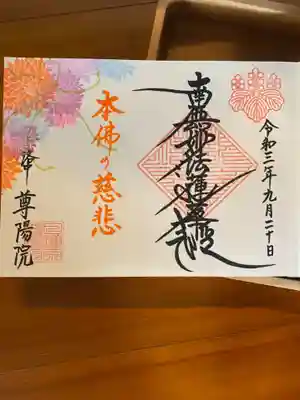 令和三年九月二十日
南無妙法蓮華経
本佛の慈悲
尊陽院